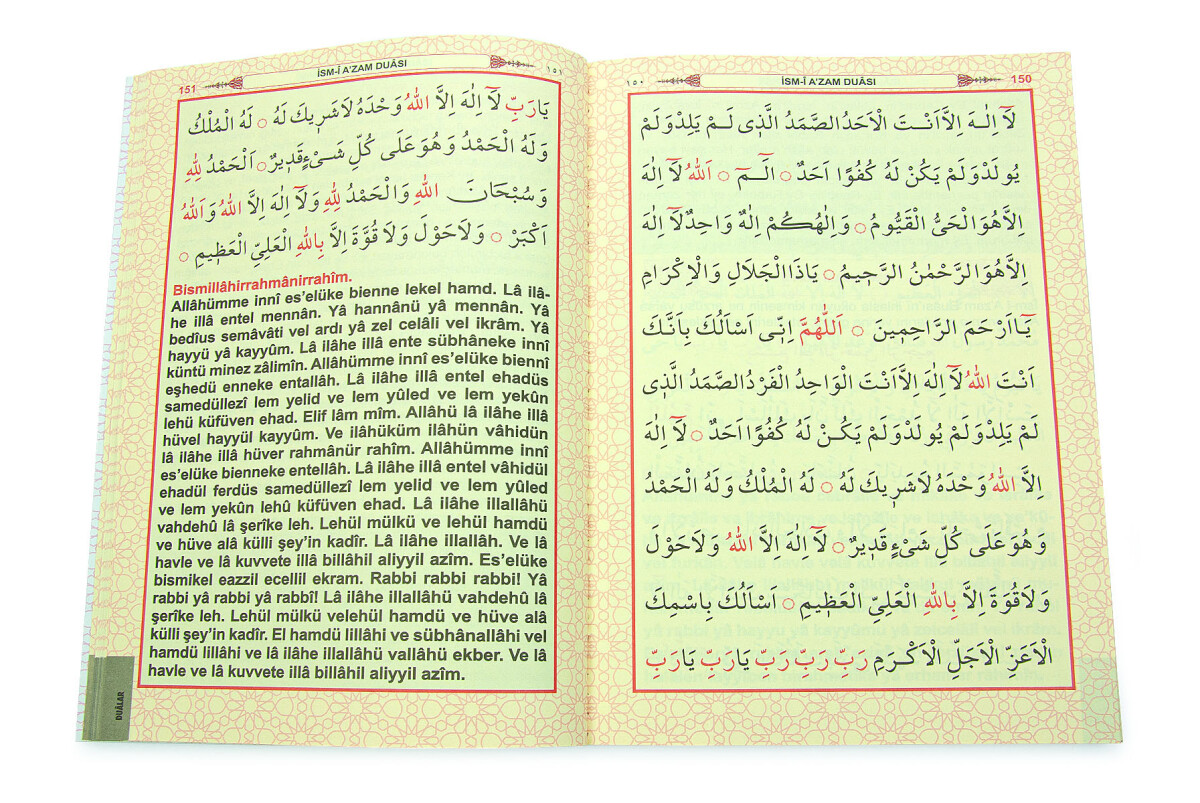 ١٥٠ İSM-İ A'ZAM DUÂSI 150
لَٓا اِلٰهَ اِلَّٓا اَنْتَ الْاَحَدُ الصَّمَدُ الَّذٖى لَمْ يَلِدْ وَلَمْ
يُولَدْ وَلَمْ يَكُنْ لَهُ كُفُوًا اَحَدٌ ۝ الٓمٓ ۝ اَللّٰهُ لَٓا اِلٰهَ
اِلَّا هُوَ الْحَىُّ الْقَيُّومُ ۝ وَاِلٰهُكُمْ اِلٰهٌ وَاحِدٌ لَٓا اِلٰهَ
اِلَّا هُوَ الرَّحْمٰنُ الرَّحٖيمُ ۝ يَاذَا الْجَلَالِ وَالْاِكْرَامِ
يَٓا اَرْحَمَ الرَّاحِمٖينَ ۝ اَللّٰهُمَّ اِنّٖى اَسْاَلُكَ بِاَنَّكَ
اَنْتَ اللّٰهُ لَٓا اِلٰهَ اِلَّٓا اَنْتَ الْوَاحِدُ الْفَرْدُ الصَّمَدُ الَّذٖى
لَمْ يَلِدْ وَلَمْ يُولَدْ وَلَمْ يَكُنْ لَهُ كُفُوًا اَحَدٌ ۝ لَٓا اِلٰهَ
اِلَّا اللّٰهُ وَحْدَهُ لَا شَرٖيكَ لَهُ ۝ لَهُ الْمُلْكُ وَلَهُ الْحَمْدُ
وَهُوَ عَلٰى كُلِّ شَىْءٍ قَدٖيرٌ ۝ لَٓا اِلٰهَ اِلَّا اللّٰهُ وَلَا حَوْلَ
وَلَا قُوَّةَ اِلَّا بِاللّٰهِ الْعَلِىِّ الْعَظٖيمِ ۝ اَسْاَلُكَ بِاسْمِكَ
الْاَعَزِّ الْاَجَلِّ الْاَكْرَمِ رَبِّ رَبِّ رَبِّ يَا رَبِّ يَا رَبِّ
151 İSM-İ A'ZAM DUÂSI ١٥١
يَا رَبِّ لَٓا اِلٰهَ اِلَّا اللّٰهُ وَحْدَهُ لَا شَرٖيكَ لَهُ ۝ لَهُ الْمُلْكُ
وَلَهُ الْحَمْدُ وَهُوَ عَلٰى كُلِّ شَىْءٍ قَدٖيرٌ ۝ اَلْحَمْدُ لِلّٰهِ
وَسُبْحَانَ اللّٰهِ وَالْحَمْدُ لِلّٰهِ وَلَٓا اِلٰهَ اِلَّا اللّٰهُ وَاللّٰهُ
اَكْبَرُ ۝ وَلَا حَوْلَ وَلَا قُوَّةَ اِلَّا بِاللّٰهِ الْعَلِىِّ الْعَظٖيمِ ۝
Bismillâhirrahmânirrahîm.
Allâhümme innî es'elüke bienne lekel hamd. Lâ ilâ-
he illâ entel mennân. Yâ hannânü yâ mennân. Yâ
bedîus semâvâti vel ardı yâ zel celâli vel ikrâm. Yâ
hayyü yâ kayyûm. Lâ ilâhe illâ ente sübhâneke innî
küntü minez zâlimîn. Allâhümme innî es'elüke biennî
eşhedü enneke entallâh. Lâ ilâhe illâ entel ehadüs
samedüllezî lem yelid ve lem yûled ve lem yekûn
lehü küfüven ehad. Elif lâm mîm. Allâhü lâ ilâhe illâ
hüvel hayyül kayyûm. Ve ilâhüküm ilâhün vâhidün
lâ ilâhe illâ hüver rahmânür rahîm. Allâhümme innî
es'elüke bienneke entellâh. Lâ ilâhe illâ entel vâhidül
ehadül ferdüs samedüllezî lem yelid ve lem yûled
ve lem yekûn lehû küfüven ehad. Lâ ilâhe illallâhü
vahdehû lâ şerîke leh. Lehül mülkü ve lehül hamdü
ve hüve alâ külli şey'in kadîr. Lâ ilâhe illallâh. Ve lâ
havle ve lâ kuvvete illâ billâhil aliyyil azîm. Es'elüke
bismikel eazzil ecellil ekram. Rabbi rabbi rabbi! Yâ
rabbi yâ rabbi yâ rabbî! Lâ ilâhe illallâhü vahdehû lâ
şerîke leh. Lehül mülkü velehül hamdü ve hüve alâ
külli şey'in kadîr. El hamdü lillâhi ve sübhânallâhi vel
hamdü lillâhi ve lâ ilâhe illallâhü vallâhü ekber. Ve lâ
havle ve lâ kuvvete illâ billâhil aliyyil azîm.
DUÂLAR